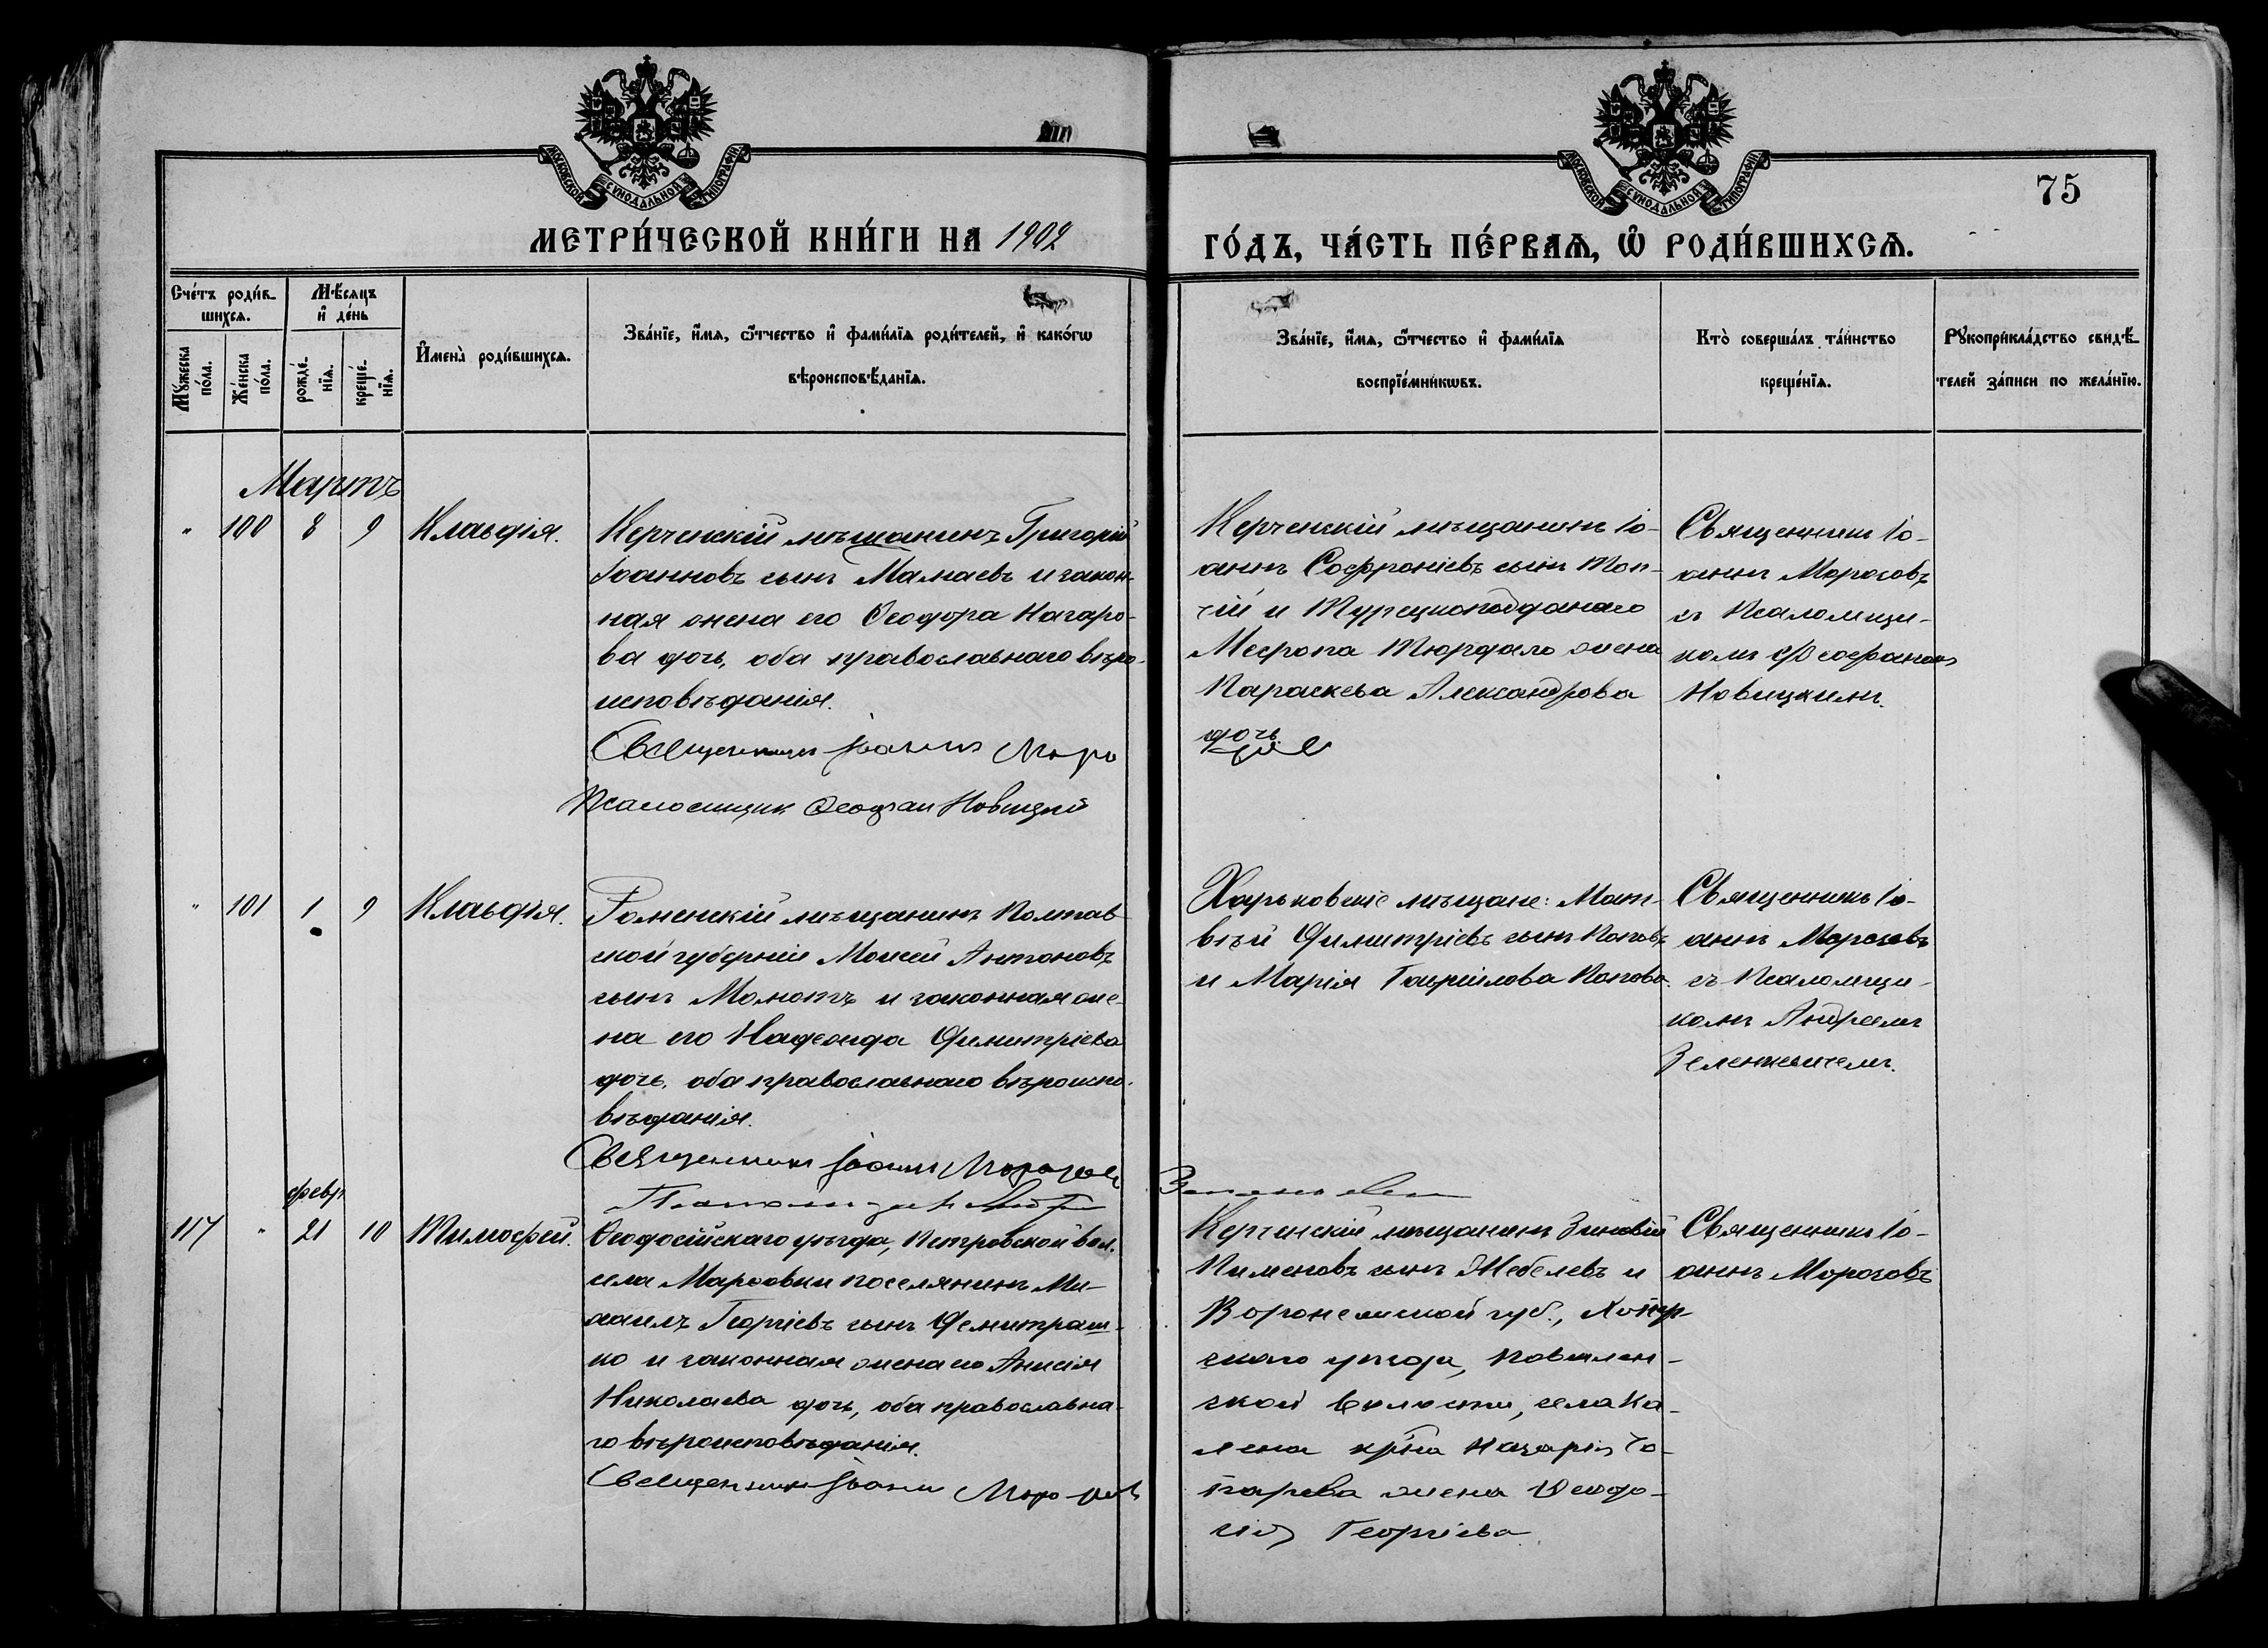 МОСКОВСКОЙ СѴНОДАЛЬНОЙ ТИПОГРАФІИ
МОСКОВСКОЙ СѴНОДАЛЬНОЙ ТИПОГРАФІИ
75
МЕТРИ́ЧЕСКОЙ КНИ́ГИ НА 1902
ГО́ДЪ, ЧА́СТЬ ПЕ́РВАѦ, Ѡ РОДИ́ВШИХСѦ.
Сче́тъ роди́в-
шихсѧ.
Мꙋжеска
по́ла.
Же́нска
по́ла.
Мѣ́сѧцъ
и҆ де́нь
рожде́-
нїѧ.
креще́-
нїѧ.
И҆мена̀ роди́вшихсѧ.
Зва́нїе, и҆́мѧ, ѻ҆́тчество и҆ фами́лїѧ роди́телей, и҆ како́гѡ
вѣроисповѣ́данїѧ.
Зва́нїе, и҆́мѧ, ѻ҆́тчество и҆ фами́лїѧ
воспрїе́мникѡвъ.
Кто̀ соверша́лъ та́инство
креще́нїѧ.
Рꙋкоприкла́дство свидѣ́-
телей за́писи по жела́нїю.
Мартъ
" 100 8 9 Клавдія.
Керченскій мѣщанинъ Григорій
Іоанновъ сынъ Мамаевъ и закон-
ная жена его Ѳеодора Назаро-
ва дочь, оба православнаго вѣро-
исповѣданія.
Священникъ Іоаннъ Моро
Псаломщик Ѳеофан Новицкій
Керченскій мѣщанинъ Іо-
аннъ Софроніевъ сынъ Топ-
чій и Турецкоподданаго
Месропа Тюрдало жена
Параскева Александрова
дочь
Священникъ Іо-
аннъ Морозовъ
съ Псаломщи-
комъ Ѳеофаномъ
Новицкимъ.
" 101 1 9 Клавдія.
Роменскій мѣщанинъ Полтав-
ской губерніи Моисей Антоновъ
сынъ Момотъ и законная же-
на его Надежда Димитріева
дочь, оба православнаго вѣроиспо-
вѣданія.
Священникъ Іоаннъ Морозовъ
Харьковскіе мѣщане: Мат-
вѣй Димитріевъ сынъ Поповъ
и Марія Гавріилова Попова.
Священникъ Іо-
аннъ Морозовъ
съ Псаломщи-
комъ Андреемъ
Зеленкевичемъ.
февр.
117 " 21 10 Тимофей.
Ѳеодосійскаго уѣзда, Петровской вол.
села Марѳовки поселянинъ Ми-
хаилъ Георгіевъ сынъ Демитраш-
ко и законная жена его Анисія
Николаева дочь, оба православна-
го вѣроисповѣданія.
Священникъ Іоаннъ Морозовъ
Керченскій мѣщанинъ Зиновій
Пименовъ сынъ Жебелевъ и
Воронежской губ.,
скаго уѣзда,
ской волости, села Ка-
крна Назарія
жена Ѳеодо-
сія Георгіева
Священникъ Іо-
аннъ Морозовъ